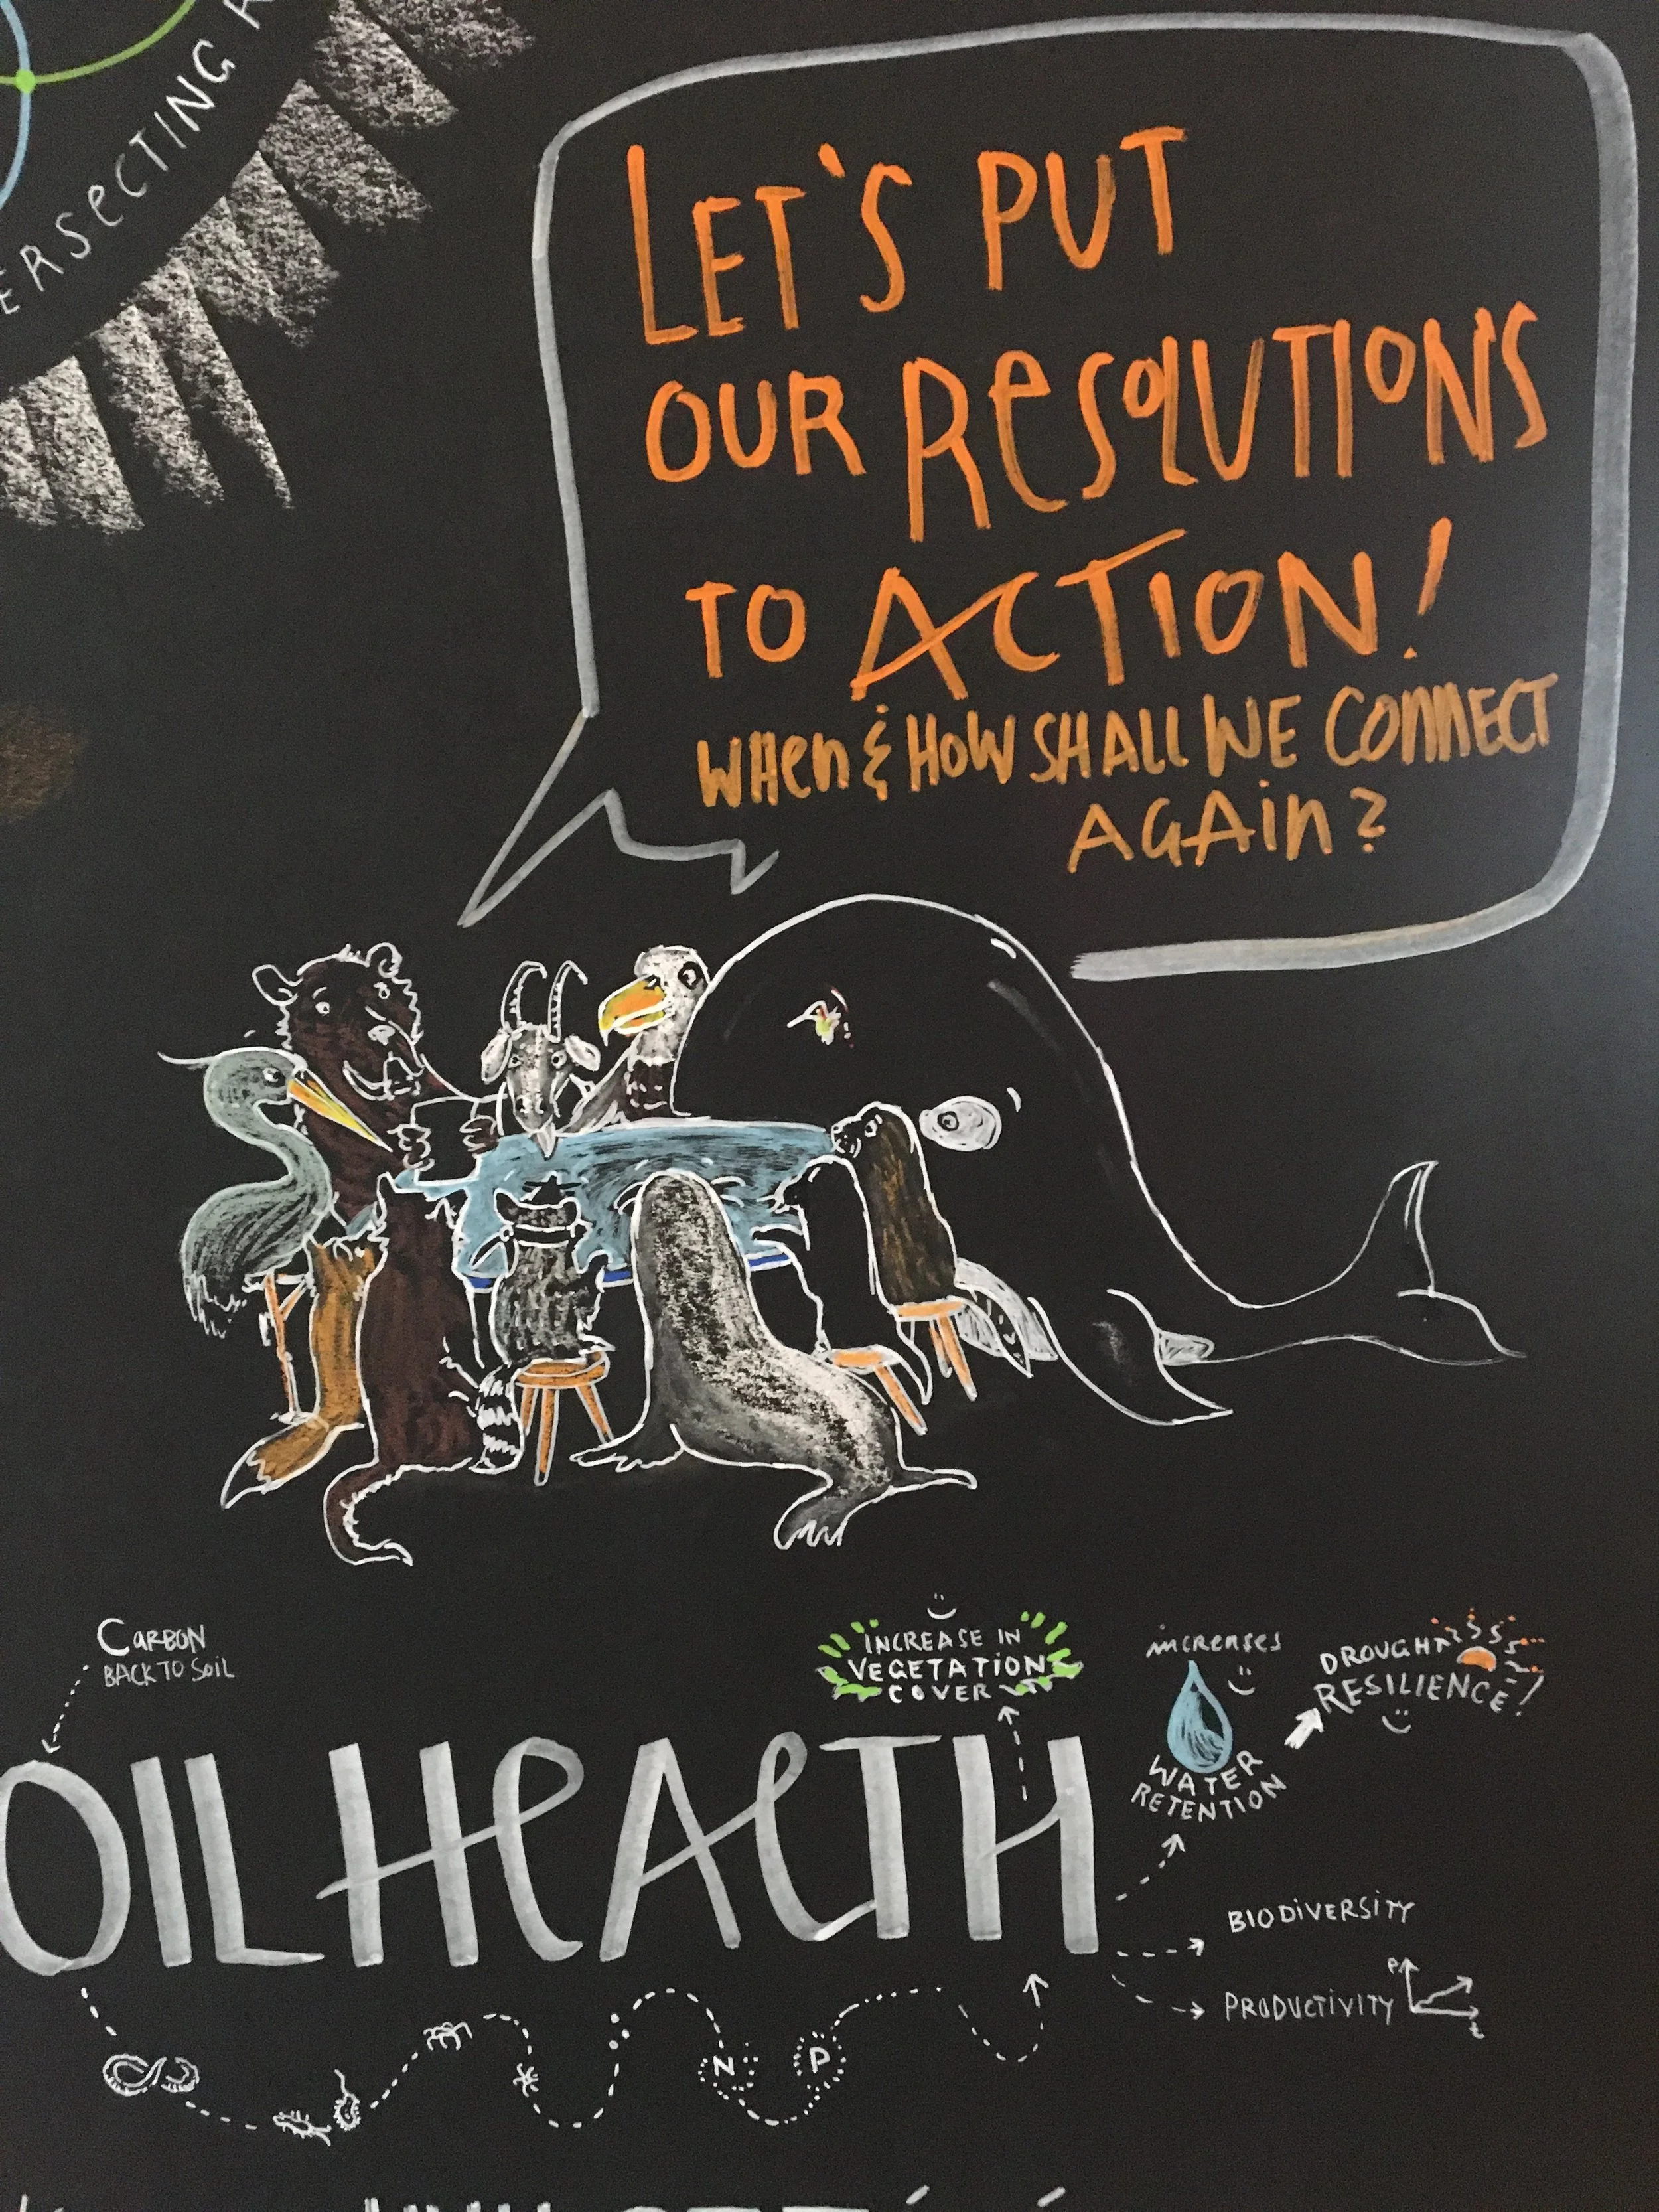 ERSECTING R
LET'S PUT
OUR RESOLUTIONS
TO ACTION!
WHEN & HOW SHALL WE CONNECT
AGAIN?
CARBON
BACK TO SOIL
INCREASE IN
VEGETATION
COVER
increases
WATER
RETENTION
DROUGHT
RESILIENCE!
OIL HEALTH
BIODIVERSITY
PRODUCTIVITY
P
t
N P